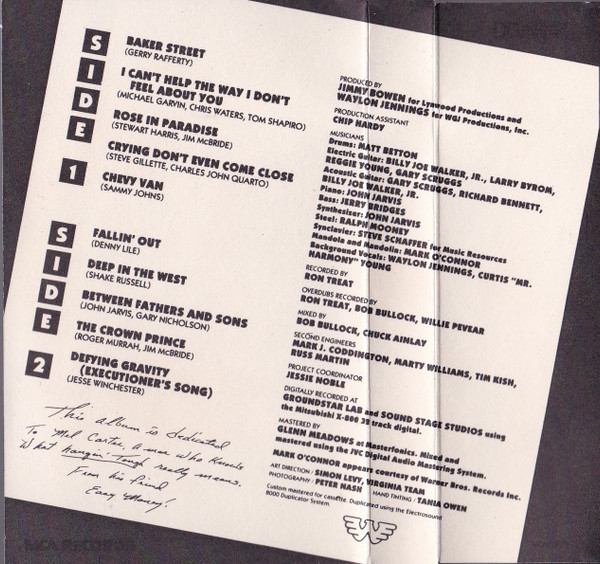 SIDE 1
BAKER STREET
(GERRY RAFFERTY)
I CAN'T HELP THE WAY I DON'T
FEEL ABOUT YOU
(MICHAEL GARVIN, CHRIS WATERS, TOM SHAPIRO)
ROSE IN PARADISE
(STEWART HARRIS, JIM McBRIDE)
CRYING DON'T EVEN COME CLOSE
(STEVE GILLETTE, CHARLES JOHN QUARTO)
CHEVY VAN
(SAMMY JOHNS)
SIDE 2
FALLIN' OUT
(DENNY LILE)
DEEP IN THE WEST
(SHAKE RUSSELL)
BETWEEN FATHERS AND SONS
(JOHN JARVIS, GARY NICHOLSON)
THE CROWN PRINCE
(ROGER MURRAH, JIM McBRIDE)
DEFYING GRAVITY
(EXECUTIONER'S SONG)
(JESSE WINCHESTER)
This album is dedicated
To Mel Carter, a man who knows
What Hangin' Tough really means.
From his friend
PRODUCED BY
JIMMY BOWEN for Lynwood Productions and
WAYLON JENNINGS for WGJ Productions, Inc.
PRODUCTION ASSISTANT
CHIP HARDY
MUSICIANS
Drums: MATT BETTON
Electric Guitar: BILLY JOE WALKER, JR., LARRY BYROM,
REGGIE YOUNG, GARY SCRUGGS
Acoustic Guitar: GARY SCRUGGS, RICHARD BENNETT,
BILLY JOE WALKER, JR.
Piano: JOHN JARVIS
Bass: JERRY BRIDGES
Synthesizer: JOHN JARVIS
Steel: RALPH MOONEY
Synclavier: STEVE SCHAFFER for Music Resources
Mandola and Mandolin: MARK O'CONNOR
Background Vocals: WAYLON JENNINGS, CURTIS "MR.
HARMONY" YOUNG
RECORDED BY
RON TREAT
OVERDUBS RECORDED BY
RON TREAT, BOB BULLOCK, WILLIE PEVEAR
MIXED BY
BOB BULLOCK, CHUCK AINLAY
SECOND ENGINEERS
MARK J. CODDINGTON, MARTY WILLIAMS, TIM KISH,
RUSS MARTIN
PROJECT COORDINATOR
JESSIE NOBLE
DIGITALLY RECORDED AT
GROUNDSTAR LAB and SOUND STAGE STUDIOS using
the Mitsubishi X-800 32 track digital.
MASTERED BY
GLENN MEADOWS at Masterfonics. Mixed and
mastered using the JVC Digital Audio Mastering System.
MARK O'CONNOR appears courtesy of Warner Bros. Records Inc.
ART DIRECTION / SIMON LEVY, VIRGINIA TEAM
PHOTOGRAPHY / PETER NASH HAND TINTING / TANIA OWEN
Custom mastered for cassette. Duplicated using the Electrosound
8000 Duplicator System.
MCA RECORDS